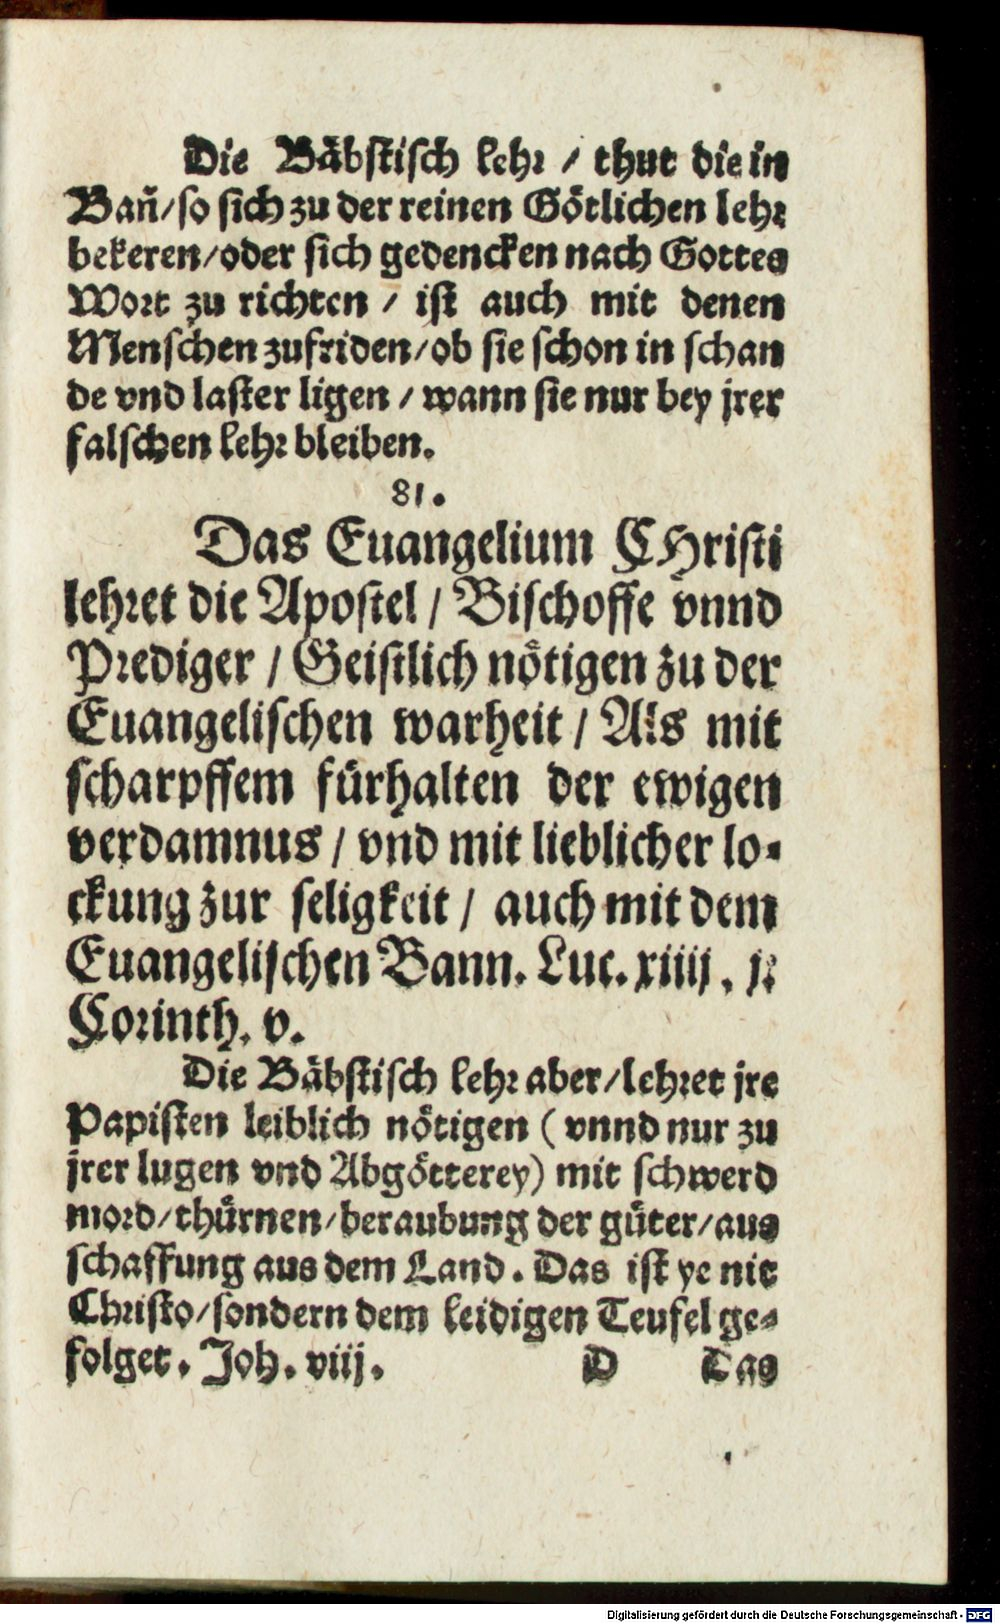 Die Bäbstisch lehr / thut die in
Bañ/so sich zu der reinen Götlichen lehr
bekeren/oder sich gedencken nach Gottes
Wort zu richten / ist auch mit denen
Menschen zufriden/ob sie schon in schan
de vnd laster ligen / wann sie nur bey jrer
falschen lehr bleiben.
81.
Das Euangelium CHristi
lehret die Apostel / Bischoffe vnnd
Prediger / Geistlich nötigen zu der
Euangelischen warheit / Als mit
scharpffem fürhalten der ewigen
verdamnus / vnd mit lieblicher lo-
ckung zur seligkeit / auch mit dem
Euangelischen Bann. Luc. xiiij. j.
Corinth. v.
Die Bäbstisch lehr aber/lehret jre
Papisten leiblich nötigen ( vnnd nur zu
jrer lugen vnd Abgötterey) mit schwerd
mord/thürnen/beraubung der güter/aus
schaffung aus dem Land. Das ist ye nit
Christo/sondern dem leidigen Teufel ge-
folget. Joh. viij. D Das
Digitalisierung gefördert durch die Deutsche Forschungsgemeinschaft - DFG